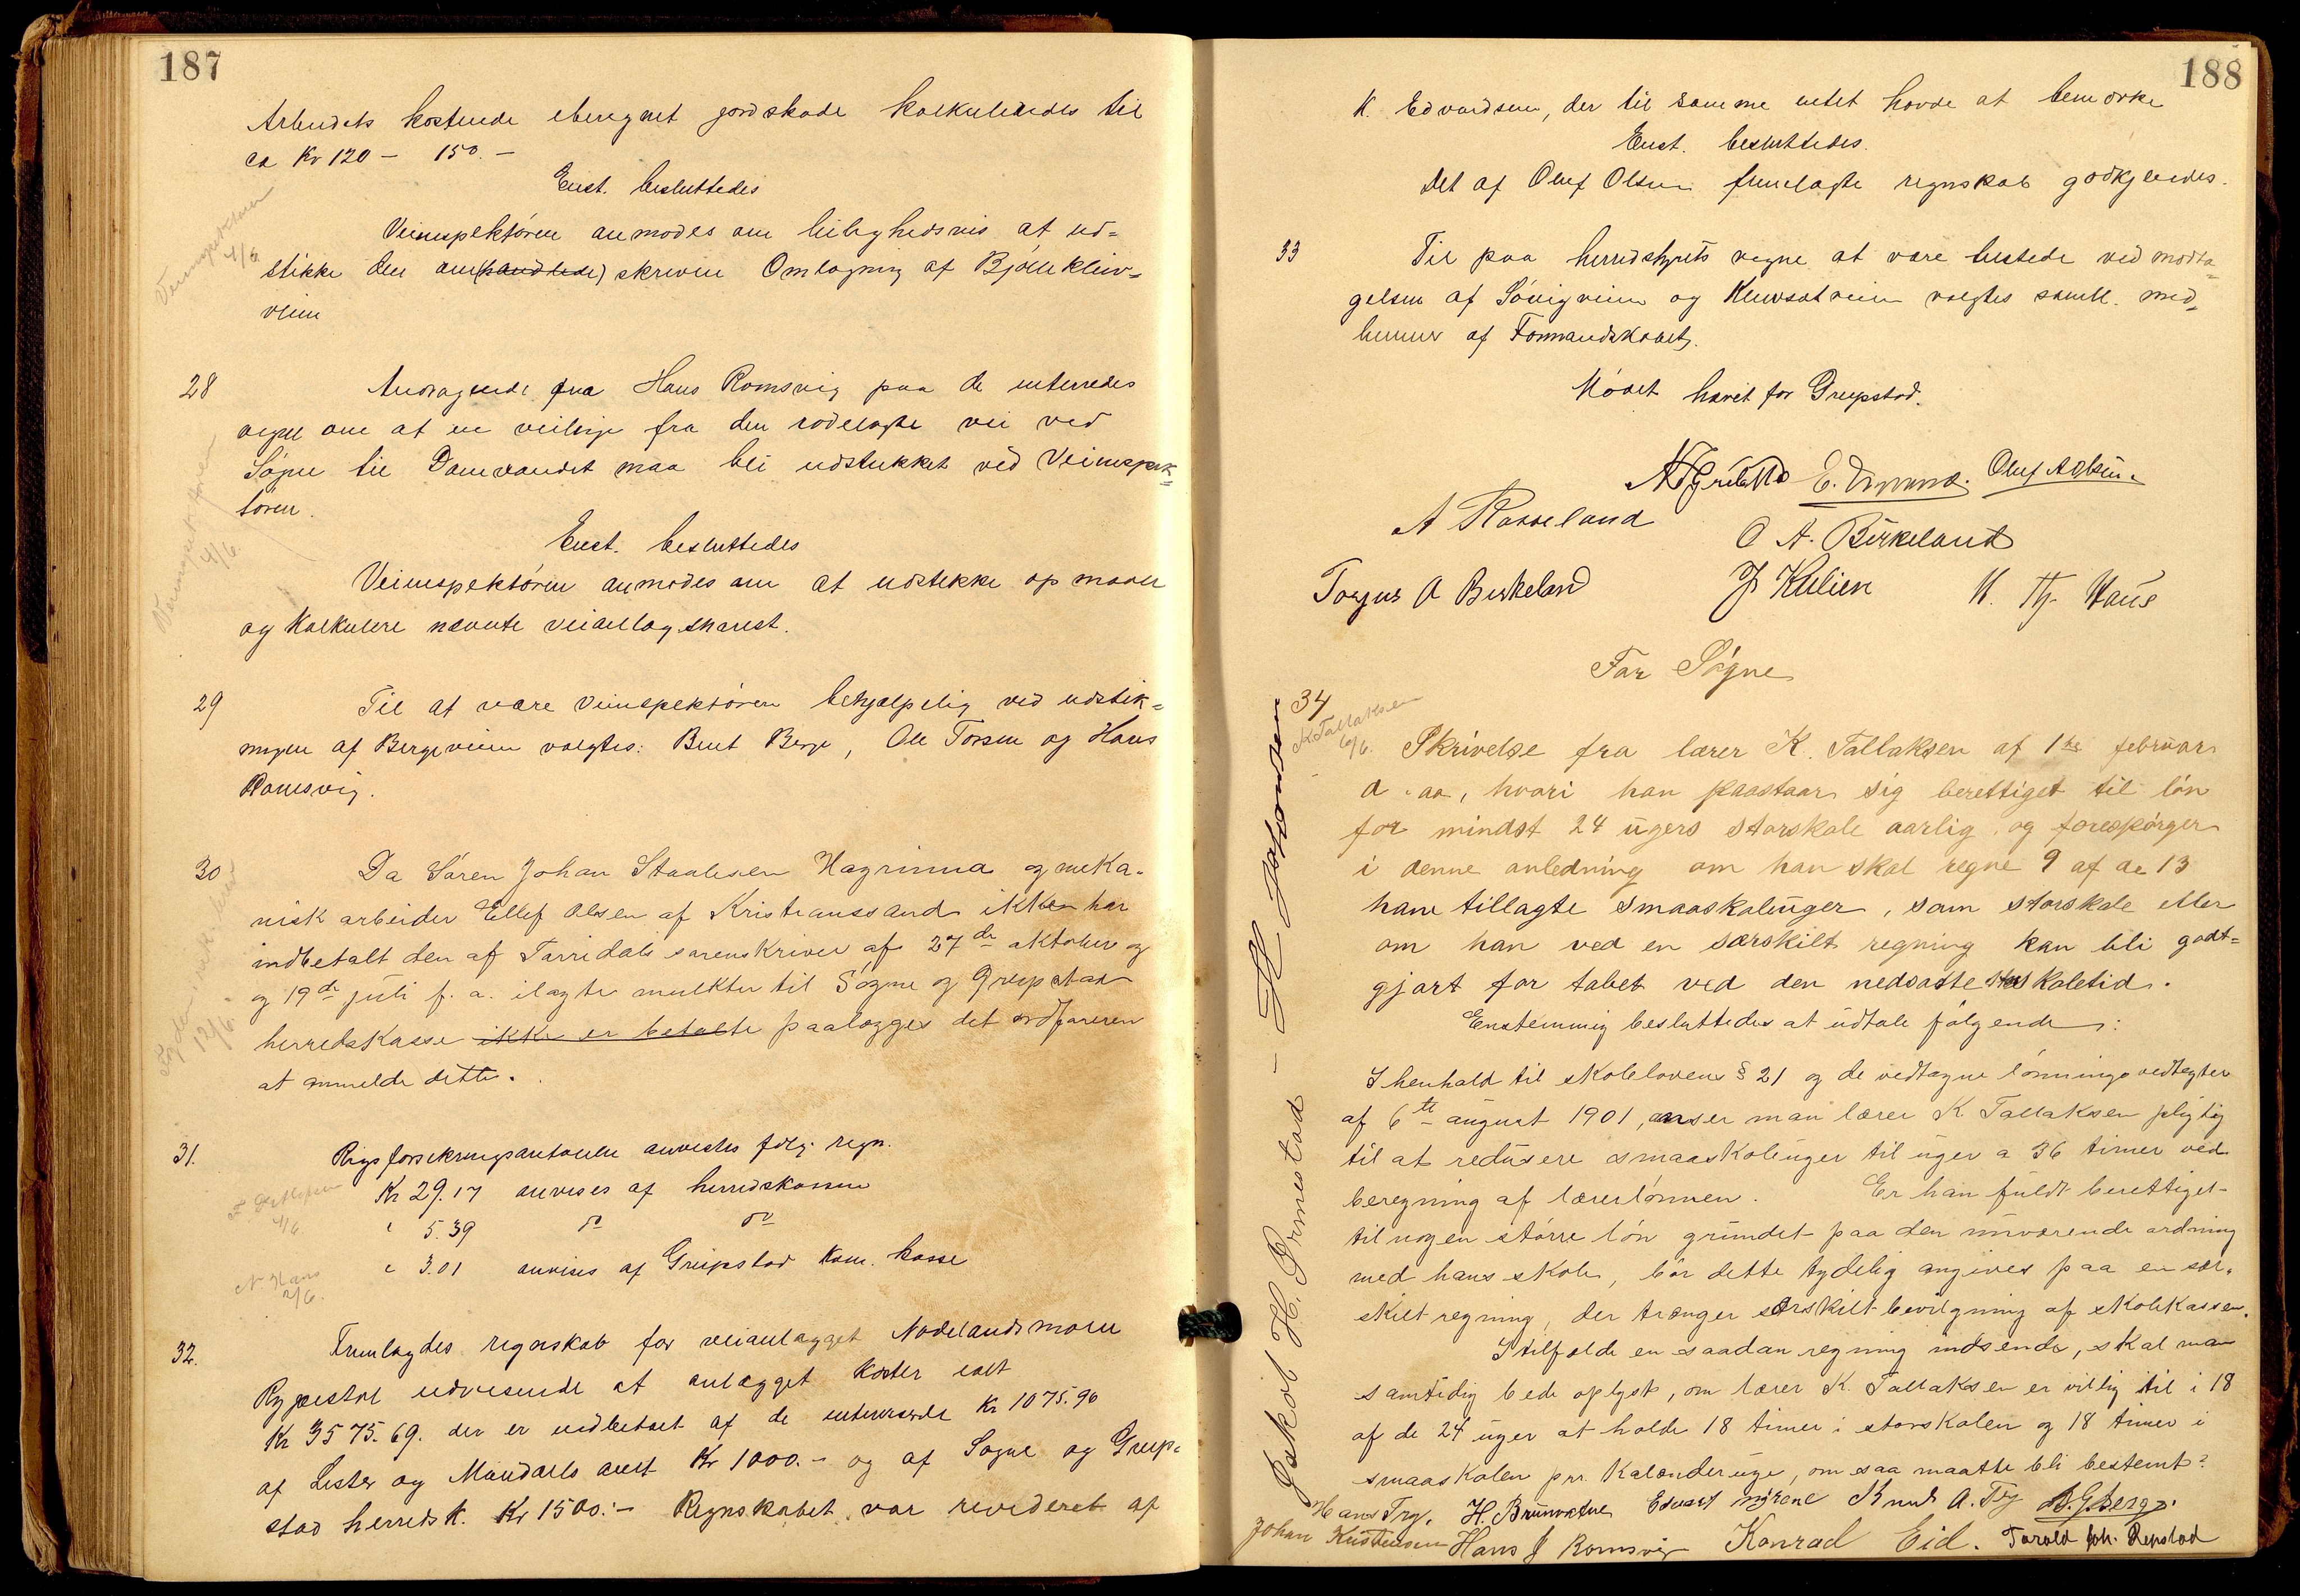 187
Arbeidets kostende iberegnet jordskade kalkuleredes til
ca Kr 120 - 150.-
Enst. besluttedes
Veiinspektøren anmodes om leilighedsvis at ud=
stikke den om(handlede)skrevne Omlægning af Bjønkleiv=
veien
Veiinspektøren
4/6
28
Andragende fra Hans Romsvig paa de interredes
vegne om at en veilinje fra den rodelagte vei ved
Søgne til Damvandet maa bli udstukket ved Veiinspek=
tøren.
Enst. besluttedes
Veiinspektøren anmodes om at udstikke op maale
og kalkulere nævnte veianlæg snarest.
Veiinspektøren
4/6.
29
Til at være veiinspektøren behjælpelig ved udstik=
ningen af Bergeveien valgtes: Bent Berge, Ole Torsen og Hans
Romsvig.
30
Da Søren Johan Staalesen Hagrinna og meka-
nisk arbeider Ellef Olsen af Kristianssand ikke har
indbetalt den af Torridals sorenskriver af 27de oktober og
og 19de juli f. a. ilagte mulkter til Søgne og Greipstad
herredskasse ikke er betalte paalægges det ordføreren
at anmelde dette.
12/6.
31.
Rigsforsikringsantalen anvistes følg. regn.
Kr 29.17 anvises af herredskassen
" 5.39 do do
" 3.01 anvises af Greipstad kom. kasse
4/6
N. Haus
2/6.
32.
Fremlagdes regnskab for veianlægget Nodelandsmoen
Rypestøl udvisende at anlægget koster ialt
Kr 3575.69. der er indbetalt af de interesserede Kr 1075.90
af Lister og Mandals amt Kr 1000.- og af Søgne og Greip-
stad herredsk. Kr 1500:- Regnskabet var revideret af
188
K. Edvardsen, der til samme intet havde at bemærke
Enst. besluttedes.
Det af Oluf Olsen fremlagte regnskab godkjendes.
33
Til paa herredstyrets vegne at være tilstede ved modta=
gelsen af Søvigveien og Kleivsetveien valgtes samtl. med=
lemmer af Formandskabet.
Mødet hævet for Greipstad.
Oluf A Olsen.
A Rosseland
O A. Birkeland
Torjus A Birkeland
J Kulien
N. Tj. Haus
For Søgne
34
K Tallaksen
6/6.
Skrivelse fra lærer K. Tallaksen af 1ste februar
d. aa, hvori han paastaar sig berettiget til løn
for mindst 24 ugers storskole aarlig og forespørger
i denne anledning om han skal regne 9 af de 13
ham tillagte smaaskoleuger, som storskole eller
om han ved en særskilt regning kan bli godt=
gjort for tabet ved den nedsatte storskoletid.
Enstemmig besluttedes at udtale følgende:
I henhold til skoleloven § 21 og de vedtagne lønningsvedtægter
af 6te august 1901, anser man lærer K. Tallaksen pligtig
til at redusere smaaskoleuger til uger a 36 timer ved
beregning af lærerlønnen. Er han fuldt berettiget
til nogen større løn grundet paa den nuværende ordning
med hans skole, bør dette tydelig angives paa en sær-
skilt regning, der trænger særskilt bevilgning af skolekassen.
I tilfælde en saadan regning indsendes, skal man
samtidig bede oplyst, om lærer K. Tallaksen er villig til i 18
af de 24 uger at holde 18 timer i storskolen og 18 timer i
smaaskolen pr. kalenderuge, om saa maatte bli bestemt?
Hans Try. H. Brunvatne Edvard Myrene Knud A. Try A. G. Berge.
Johan Kristensen Hans J Romsvig Konrad Eid. Torald Joh. Repstad